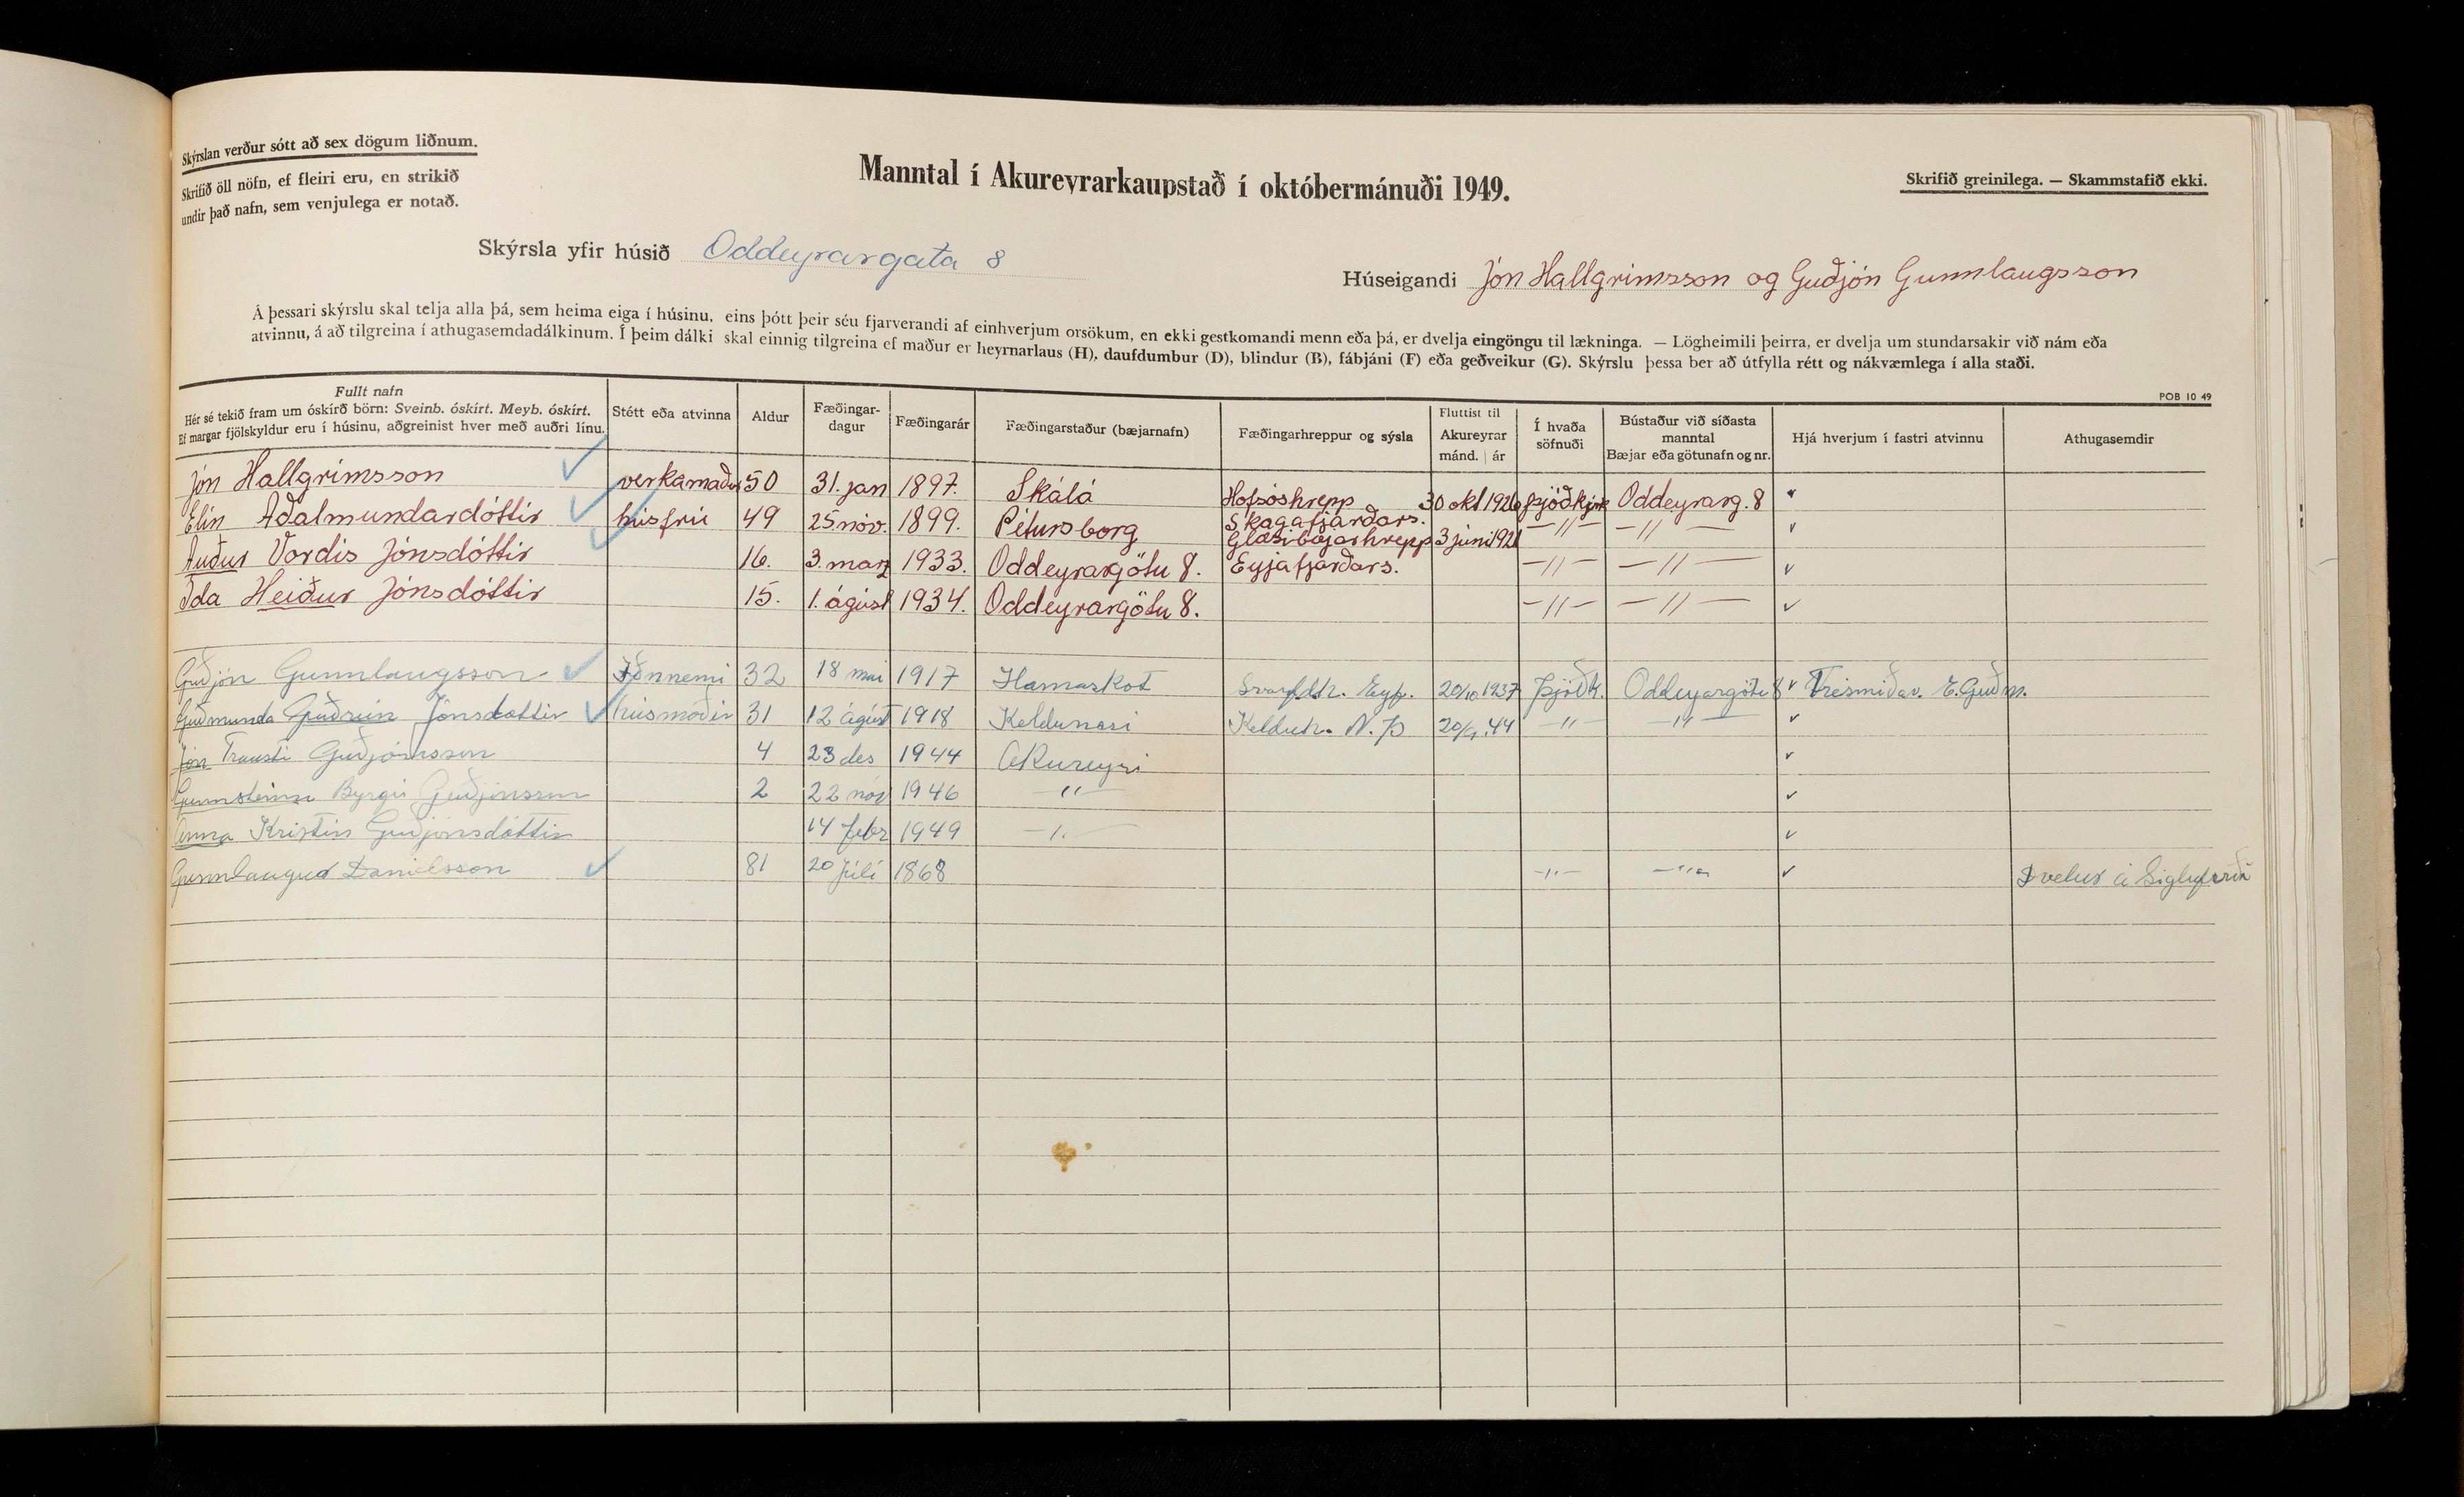 Skýrslan verður sótt að sex dögum liðnum.
Skrifið öll nöfn, ef fleiri eru, en strikið
undir það nafn, sem venjulega er notað.
Manntal í Akureyrarkaupstað í októbermánuði 1949.
Skrifið greinilega. — Skammstafið ekki.
Skýrsla yfir húsið Oddeyrargata 8
Húseigandi Jón Hallgrímsson og Guðjón Gunnlaugsson
Á þessari skýrslu skal telja alla þá, sem heima eiga í húsinu, eins þótt þeir séu fjarverandi af einhverjum orsökum, en ekki gestkomandi menn eða þá, er dvelja eingöngu til lækninga. — Lögheimili þeirra, er dvelja um stundarsakir við nám eða
atvinnu, á að tilgreina í athugasemdadálkinum. Í þeim dálki skal einnig tilgreina ef maður er heyrnarlaus (H), daufdumbur (D), blindur (B), fábjáni (F) eða geðveikur (G). Skýrslu þessa ber að útfylla rétt og nákvæmlega í alla staði.
POB 10 49
Fullt nafn
Hér sé tekið fram um óskírð börn: Sveinb. óskírt. Meyb. óskírt.
Ef margar fjölskyldur eru í húsinu, aðgreinist hver með auðri línu.
Stétt eða atvinna
Aldur
Fæðingar-
dagur
Fæðingarár
Fæðingarstaður (bæjarnafn)
Fæðingarhreppur og sýsla
Fluttist til
Akureyrar
mánd. ár
Í hvaða
söfnuði
Bústaður við síðasta
manntal
Bæjar eða götunafn og nr.
Hjá hverjum í fastri atvinnu
Athugasemdir
Jón Hallgrímsson verkamaður 50 31. jan 1897. Skálá Hofsóshrepp Skagafjarðars. 30 okt 1926 þjóðkjrk Oddeyrarg. 8
Elín Aðalmundardóttir húsfrú 49 25 nóv. 1899. Pétursborg Glæsibæjarhrepp Eyjafjarðars. 3 júní 1921 —"— —"—
Auður Vordís Jónsdóttir 16. 3. marz 1933. Oddeyrargötu 8. —"— —"—
Ída Heiður Jónsdóttir 15. 1. ágúst 1934. Oddeyrargötu 8. —"— —"—
Guðjón Gunnlaugsson Iðnnemi 32 18 mai 1917 Hamarkot Svarfdh. Eyf. 20/10 1937 Þjóðk. Oddeyargötu 8 Trésmiðav. E. Guðm.
Guðmunda Guðrún Jónsdóttir húsmóðir 31 12 ágúst 1918 Keldunesi Kelduh. N. Þ 44 —"— —"—
Jón Trausti Guðjónsson 4 23 des 1944 Akureyri
Gunnsteinn Byrgir Guðjónsson 2 22 nóv 1946 —"—
Anna Kristín Guðjónsdóttir 14 febr 1949 —"—
Gunnlaugur Daníelsson 81 20 júlí 1868 —"— —"— Dvelur á Siglufirði